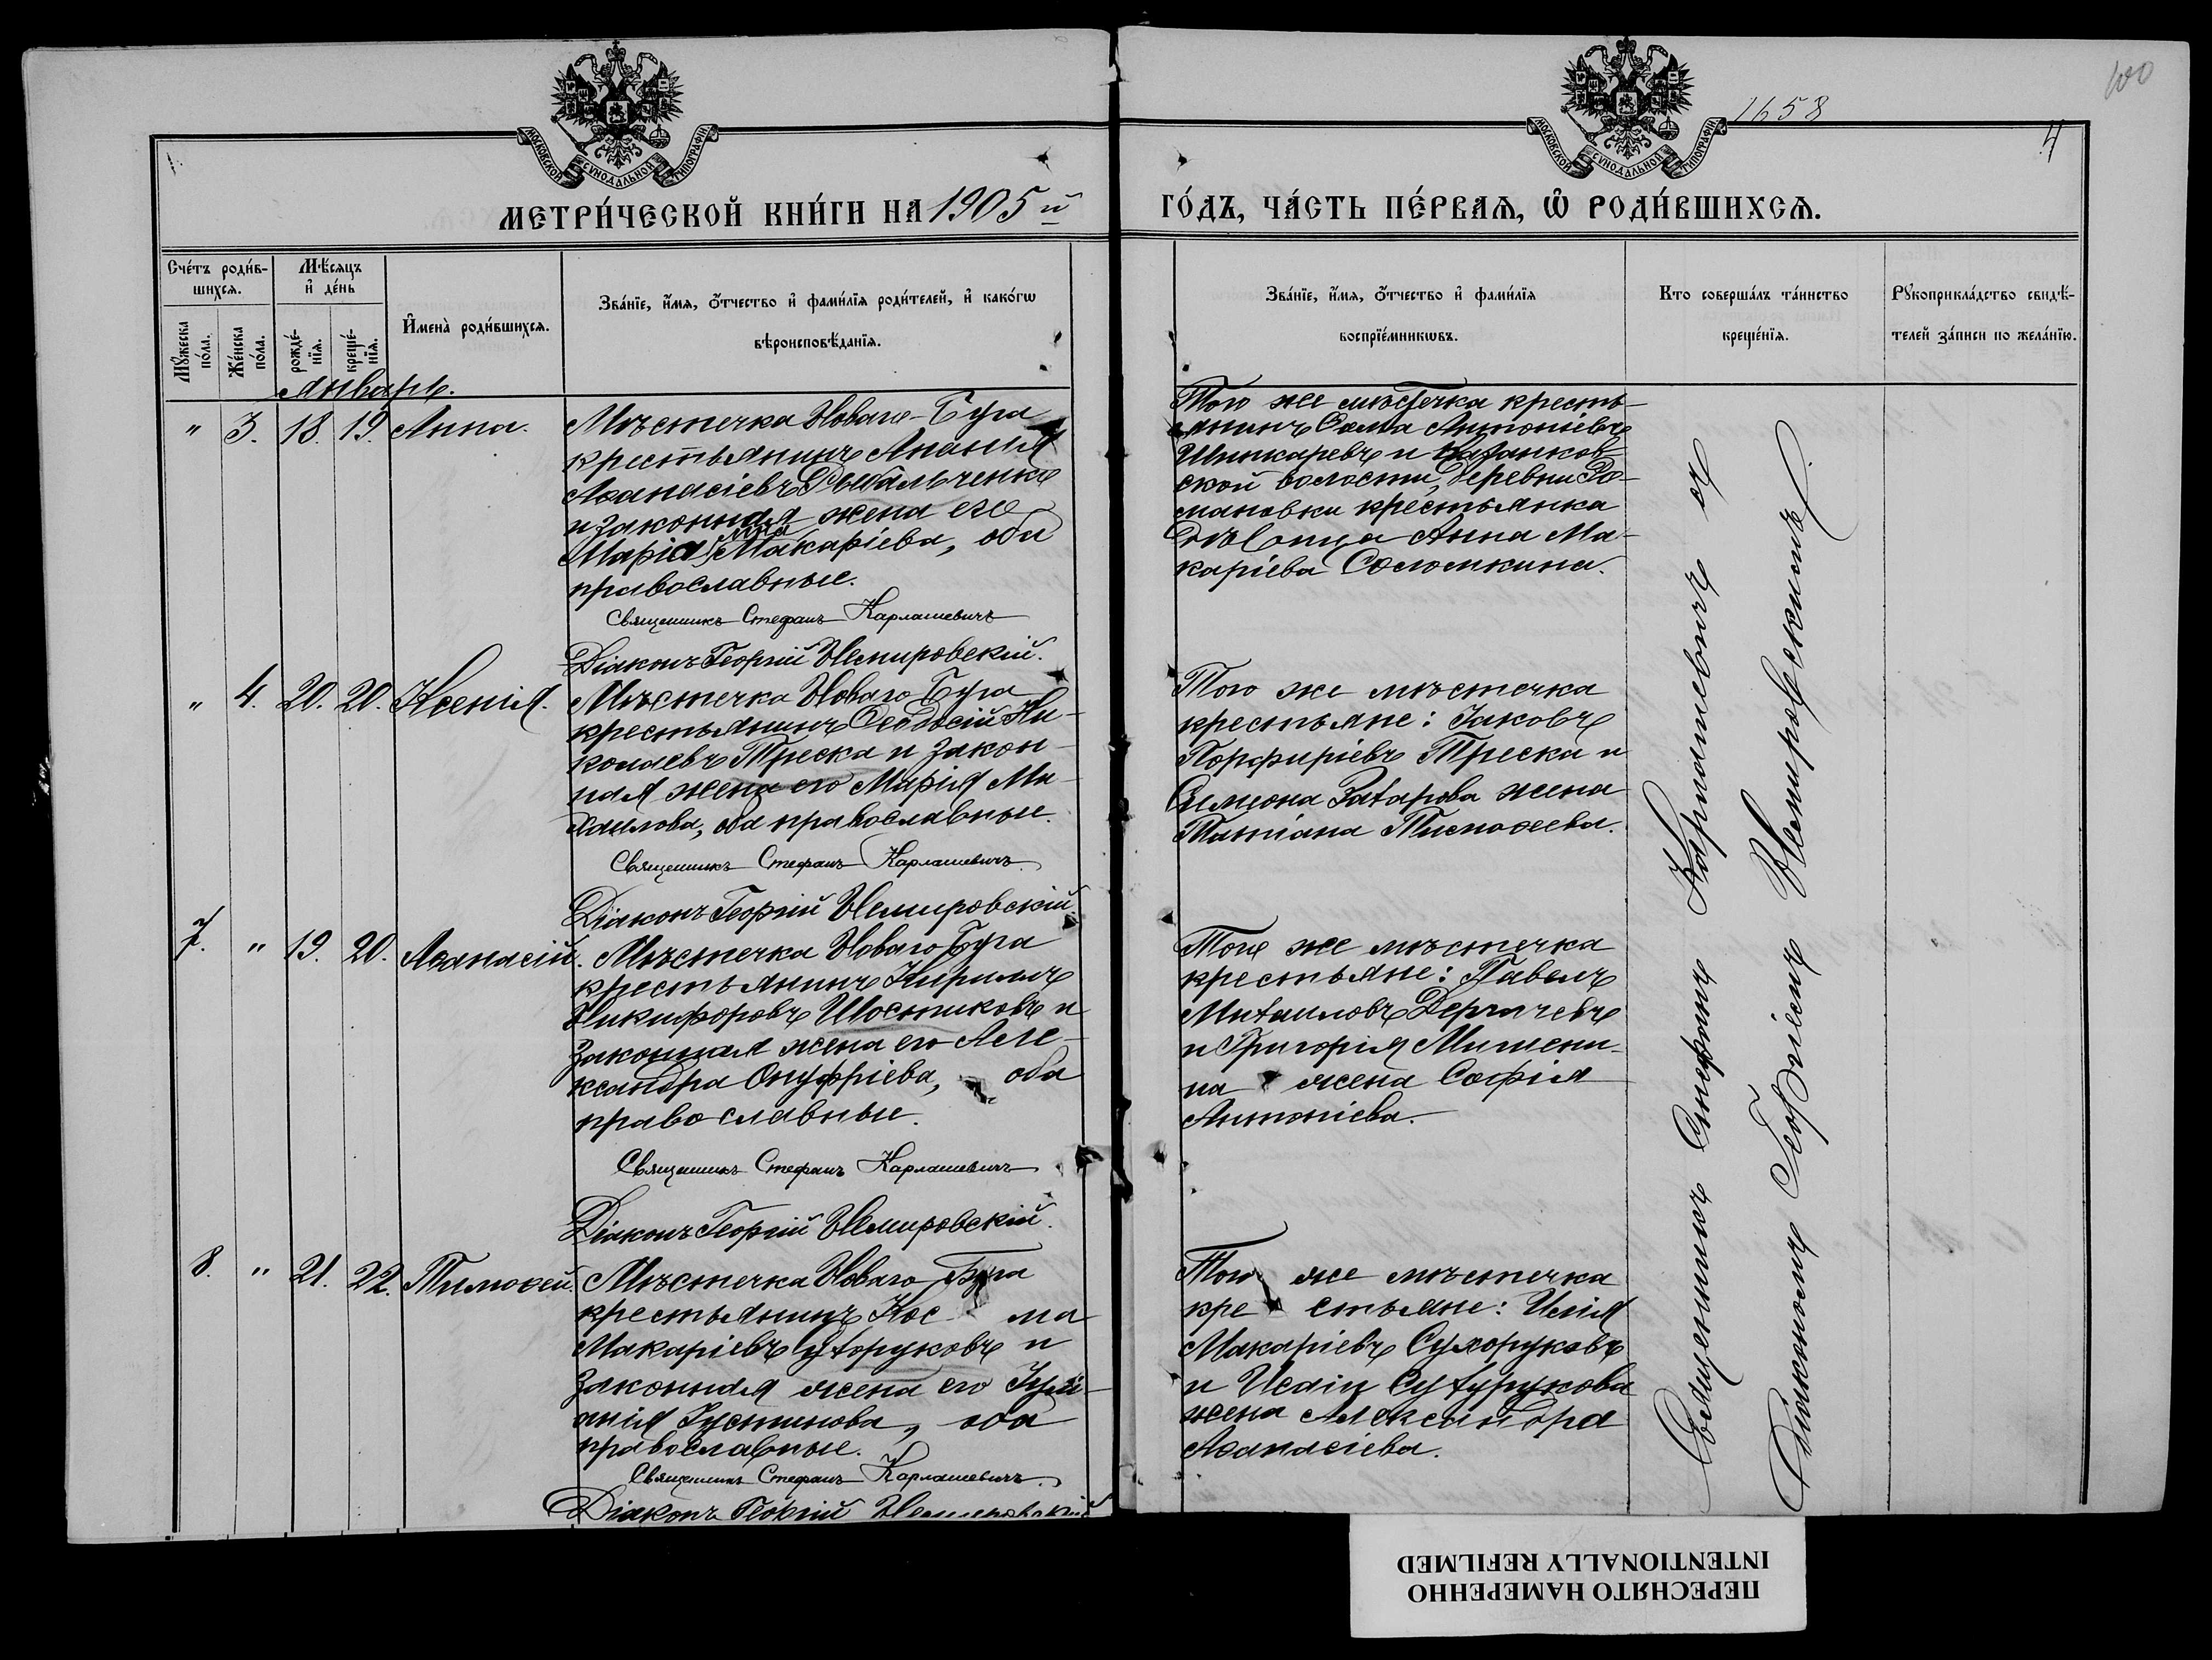 1658
100
4
МОСКОВСКОЙ СѴНОДАЛЬНОЙ ТИПОГРАФІИ
МОСКОВСКОЙ СѴНОДАЛЬНОЙ ТИПОГРАФІИ
МЕТРИ́ЧЕСКОЙ КНИ́ГИ НА 1905 й
ГО́ДЪ, ЧА́СТЬ ПЕ́РВАѦ, Ѡ҆ РОДИ́ВШИХСѦ.
Сче́тъ роди́в-
шихсѧ.
Мꙋ́жеска по́ла.
Же́нска по́ла.
Мѣ́сѧцъ
и҆ де́нь
рожде́-
нїѧ.
креще́-
нїѧ.
И҆мена̀ роди́вшихсѧ.
Зва́нїе, и҆́мѧ, ѻ҆́тчество и҆ фами́лїѧ роди́телей, и҆ како́гѡ
вѣроисповѣ́данїѧ.
Зва́нїе, и҆́мѧ, ѻ҆́тчество и҆ фами́лїѧ
воспрїе́мникѡвъ.
Кто соверша́лъ та́инство
креще́нїѧ.
Рꙋкоприкла́дство свидѣ́-
телей за́писи по жела́нїю.
Январь.
" 3. 18. 19. Анна.
Мѣстечка Новаго-Буга
крестьянинъ Ананія
Аѳанасіевъ
и законная жена его
Марія Макаріева, оба
православные.
Священникъ Стефанъ Карлашевичъ
Діаконъ Георгій Немировскій.
Того же мѣстечка кресть-
янинъ Ѳома Антоніевъ
Шинкаревъ и Казанков-
ской волости, деревни Ро-
мановки крестьянка
дѣвица Анна Ма-
каріева Соломкина.
" 4. 20. 20. Ксенія.
Мѣстечка Новаго Буга
крестьянинъ Ѳеодосій Ни-
колаевъ Треска и закон-
ная жена его Марія Ми-
хаилова, оба православные.
Священникъ Стефанъ Карлашевичъ
Діаконъ Георгій Немировскій.
Того же мѣстечка
крестьяне: Іаковъ
Порфиріевъ Треска и
Симеона Захарова жена
Татіана Тимоѳеева.
7. " 19. 20. Аѳанасій.
Мѣстечка Новаго Буга
крестьянинъ Кириллъ
Никифоровъ Шостиковъ и
законная жена его Але-
ксандра Онуфріева, оба
православные.
Священникъ Стефанъ Карлашевичъ
Діаконъ Георгій Немировскій.
Того же мѣстечка
крестьяне: Павелъ
Михаиловъ Дергачевъ
и Григорія Мишени-
на жена Софія
Антоніева.
8. " 21. 22. Тимоѳей.
Мѣстечка Новаго Буга
крестьянинъ Кос ма
Макаріевъ Сухоруковъ и
законная жена его Іулі-
анія Іустинова, оба
православные.
Священникъ Стефанъ Карлашевичъ
Діаконъ Георгій Немировскій
Того же мѣстечка
кре стьяне: Илія
Макаріевъ Сухоруковъ
и Исаіи Сухорукова
жена Александра
Аѳанасіева.
Священникъ Стефанъ Карлашевичъ съ
Діакономъ Георгіемъ Немировскимъ.
ПЕРЕСНЯТО НАМЕРЕННО
INTENTIONALLY REFILMED